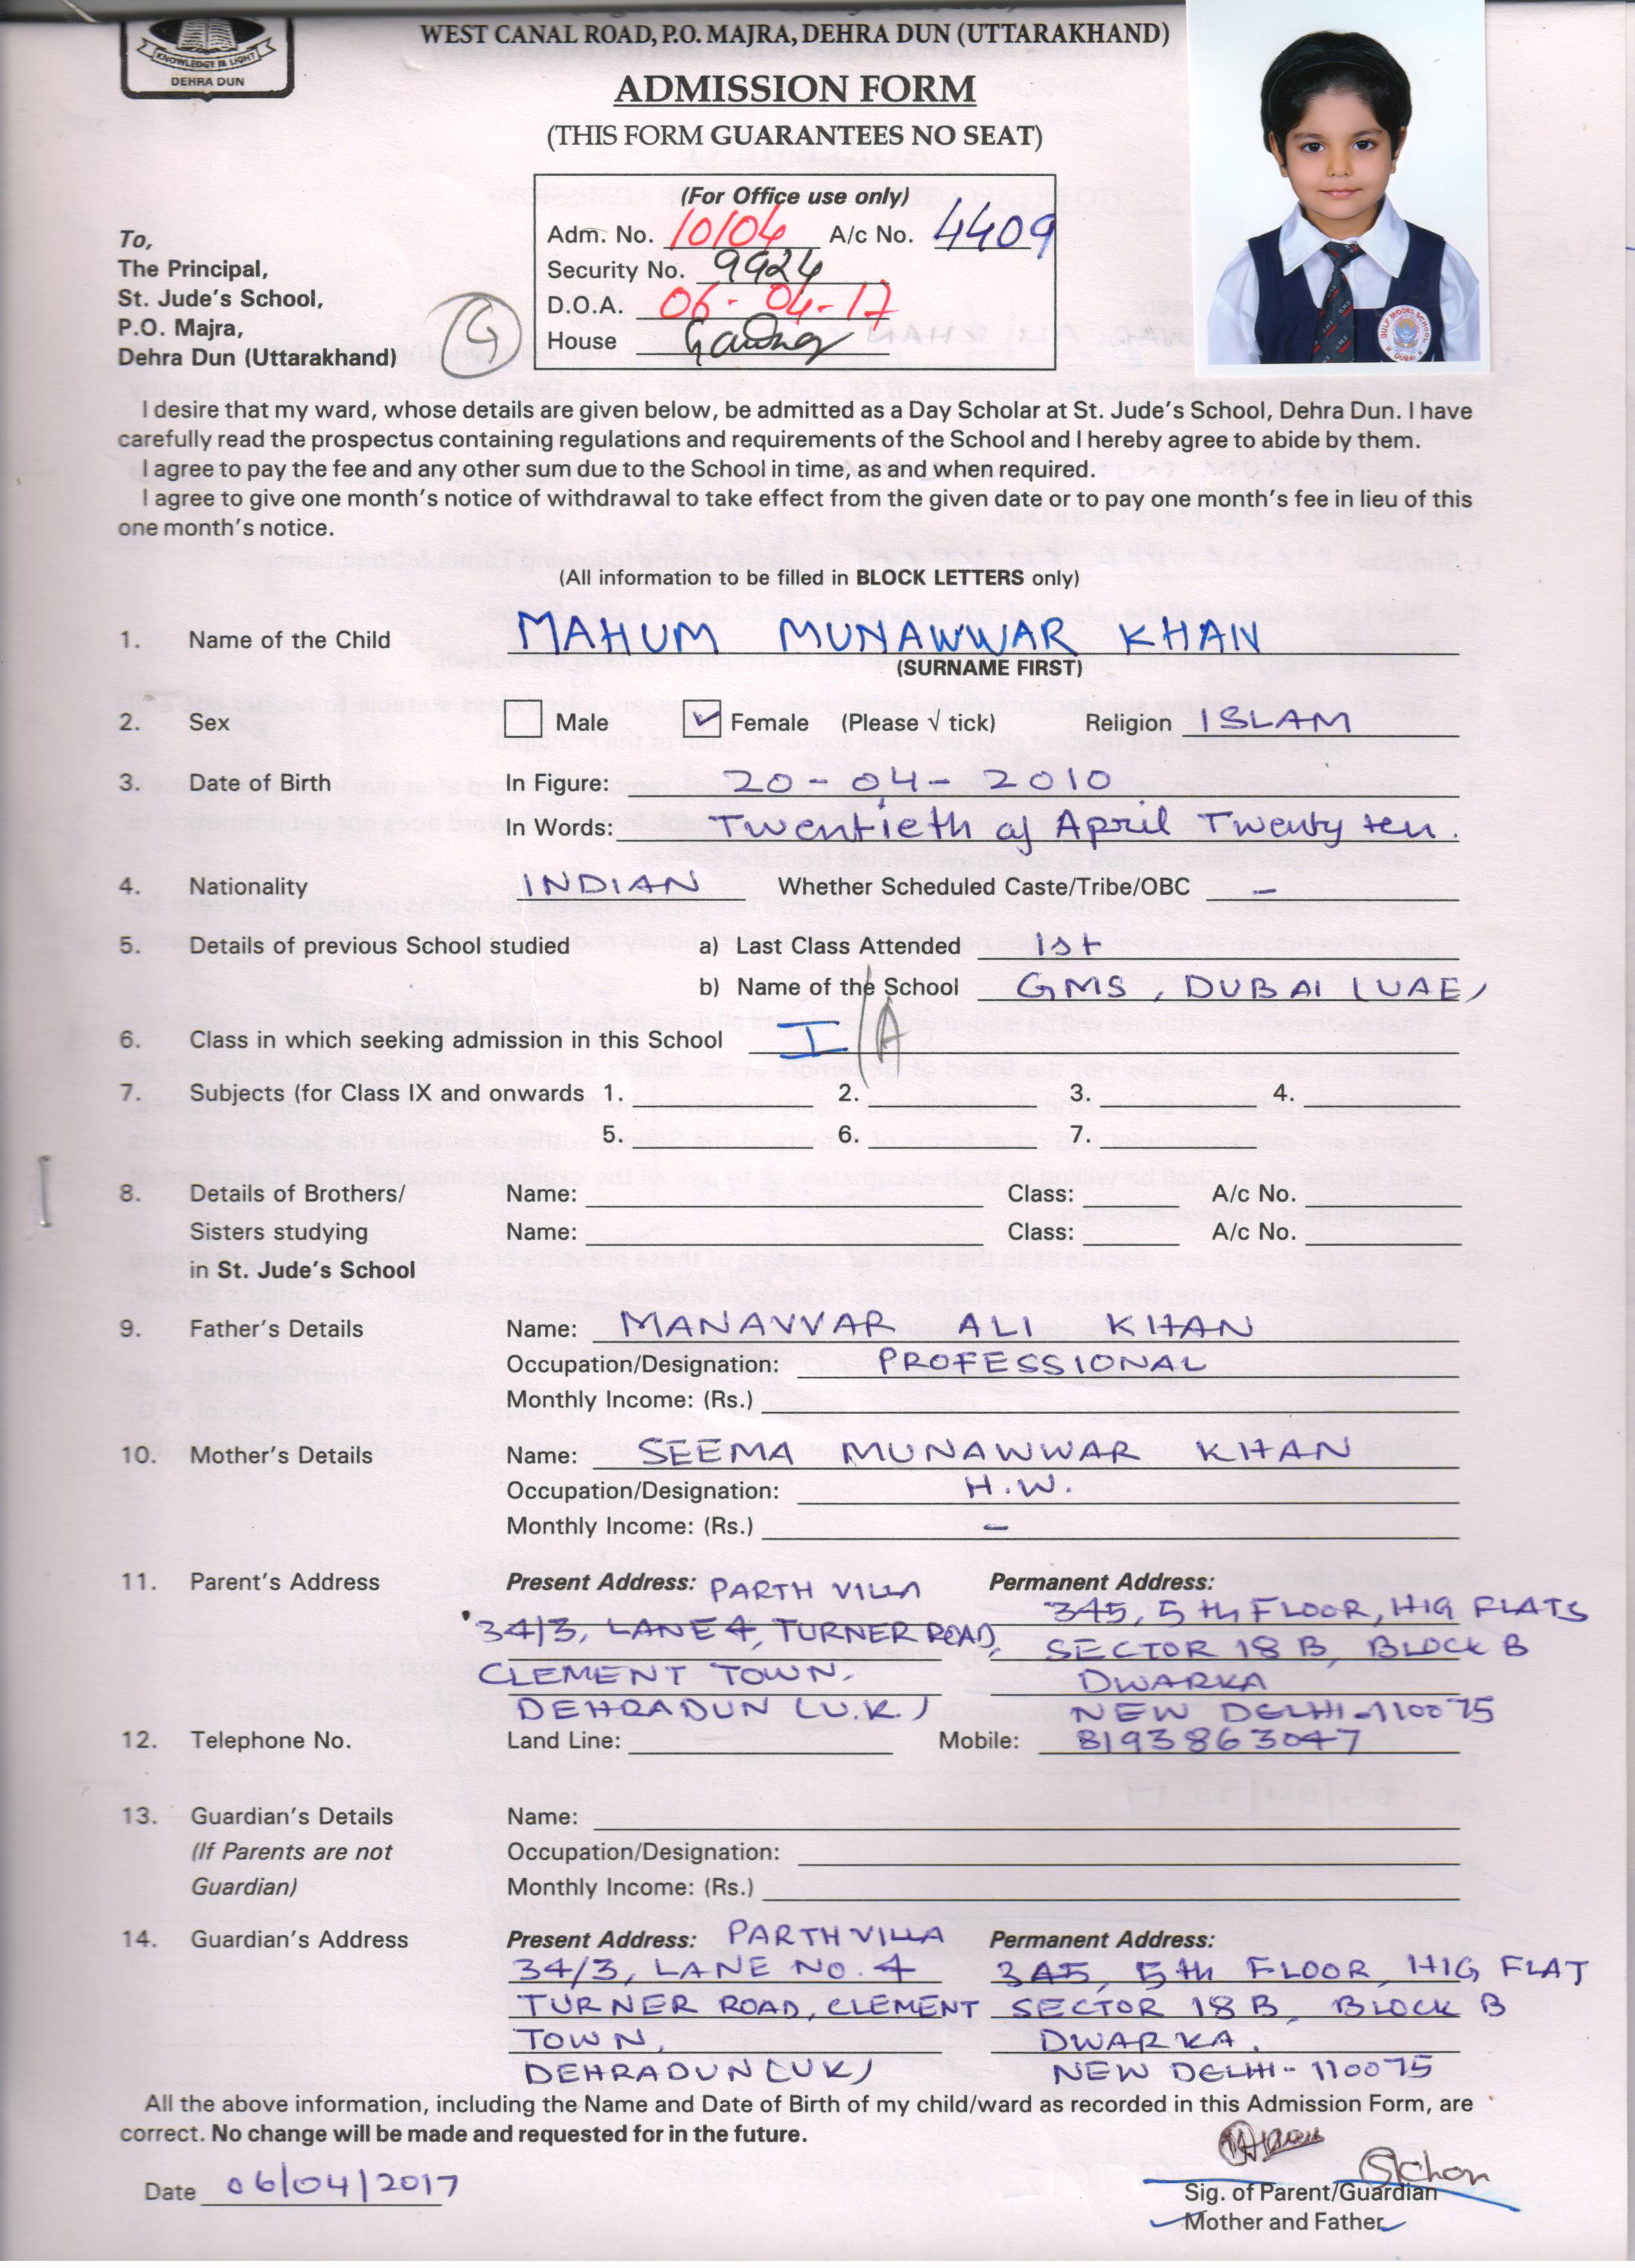 WEST CANAL ROAD, P.O. MAJRA, DEHRA DUN (UTTARAKHAND)
KNOWLEDGE IS LIGHT
DEHRA DUN
ADMISSION FORM
(THIS FORM GUARANTEES NO SEAT)
(For Office use only)
Adm. No. 10/04 A/c No. 4409
Security No. 9924
D.O.A. 06-04-17
House
G
To,
The Principal,
St. Jude's School,
P.O. Majra,
Dehra Dun (Uttarakhand)
GULF MODEL SCHOOL
DUBAI
I desire that my ward, whose details are given below, be admitted as a Day Scholar at St. Jude's School, Dehra Dun. I have
carefully read the prospectus containing regulations and requirements of the School and I hereby agree to abide by them.
I agree to pay the fee and any other sum due to the School in time, as and when required.
I agree to give one month's notice of withdrawal to take effect from the given date or to pay one month's fee in lieu of this
one month's notice.
(All information to be filled in BLOCK LETTERS only)
1. Name of the Child MAHUM MUNAWWAR KHAN
(SURNAME FIRST)
2. Sex Male Female (Please √ tick) Religion ISLAM
3. Date of Birth In Figure: 20-04-2010
In Words: Twentieth of April Twenty ten.
4. Nationality INDIAN Whether Scheduled Caste/Tribe/OBC -
5. Details of previous School studied a) Last Class Attended 1st
b) Name of the School GMS, DUBAI (UAE)
6. Class in which seeking admission in this School I/A
7. Subjects (for Class IX and onwards 1. 2. 3. 4.
5. 6. 7.
8. Details of Brothers/ Name: Class: A/c No.
Sisters studying Name: Class: A/c No.
in St. Jude's School
9. Father's Details Name: MANAVVAR ALI KHAN
Occupation/Designation: PROFESSIONAL
Monthly Income: (Rs.)
10. Mother's Details Name: SEEMA MUNAWWAR KHAN
Occupation/Designation: H.W.
Monthly Income: (Rs.) -
11. Parent's Address Present Address: PARTH VILLA Permanent Address:
34/3, LANE 4, TURNER ROAD, 345, 5th FLOOR, HIG FLATS
CLEMENT TOWN, SECTOR 18 B, BLOCK B
DEHRADUN (U.K.) DWARKA
NEW DELHI-110075
12. Telephone No. Land Line: Mobile: 8193863047
13. Guardian's Details Name:
(If Parents are not Occupation/Designation:
Guardian) Monthly Income: (Rs.)
14. Guardian's Address Present Address: PARTH VILLA Permanent Address:
34/3, LANE NO. 4 345, 5th FLOOR, HIG FLAT
TURNER ROAD, CLEMENT SECTOR 18 B, BLOCK B
TOWN, DWARKA,
DEHRADUN (UK) NEW DELHI-110075
All the above information, including the Name and Date of Birth of my child/ward as recorded in this Admission Form, are
correct. No change will be made and requested for in the future.
Date 06/04/2017
Sig. of Parent/Guardian
Mother and Father